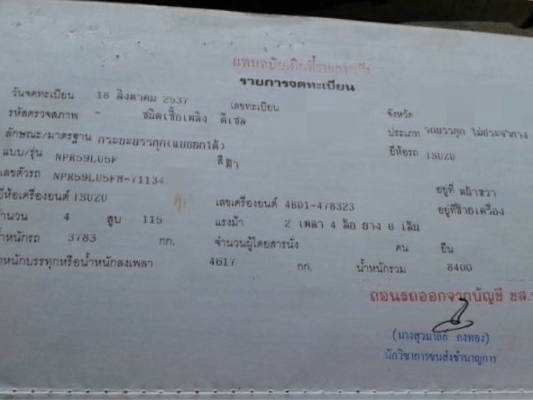 แทนฉบับเดิมที่
รายการจดทะเบียน
วันจดทะเบียน 18 สิงหาคม 2537 เลขทะเบียน จังหวัด
รหัสตรวจสภาพ - ชนิดเชื้อเพลิง ดีเซล ประเภท รถบรรทุก ไม่ประจำทาง
ลักษณะ/มาตรฐาน กระบะบรรทุก(แบบยกได้) ยี่ห้อรถ ISUZU
แบบ/รุ่น NPR59LU5F สี ฟ้า
เลขตัวรถ NPR59LU5FH-71134 อยู่ที่
ยี่ห้อเครื่องยนต์ ISUZU เลขเครื่องยนต์ 4BD1-478323 อยู่ที่ซ้ายเครื่อง
จำนวน 4 สูบ 115 แรงม้า 2 เพลา 4 ล้อ ยาง 6 เส้น
น้ำหนักรถ 3783 กก. จำนวนผู้โดยสารนั่ง คน ยืน
น้ำหนักบรรทุกหรือน้ำหนักลงเพลา 4617 กก. น้ำหนักรวม 8400
ถอนรถออกจากบัญชี ขส.
นักวิชาการขนส่งชำนาญการ